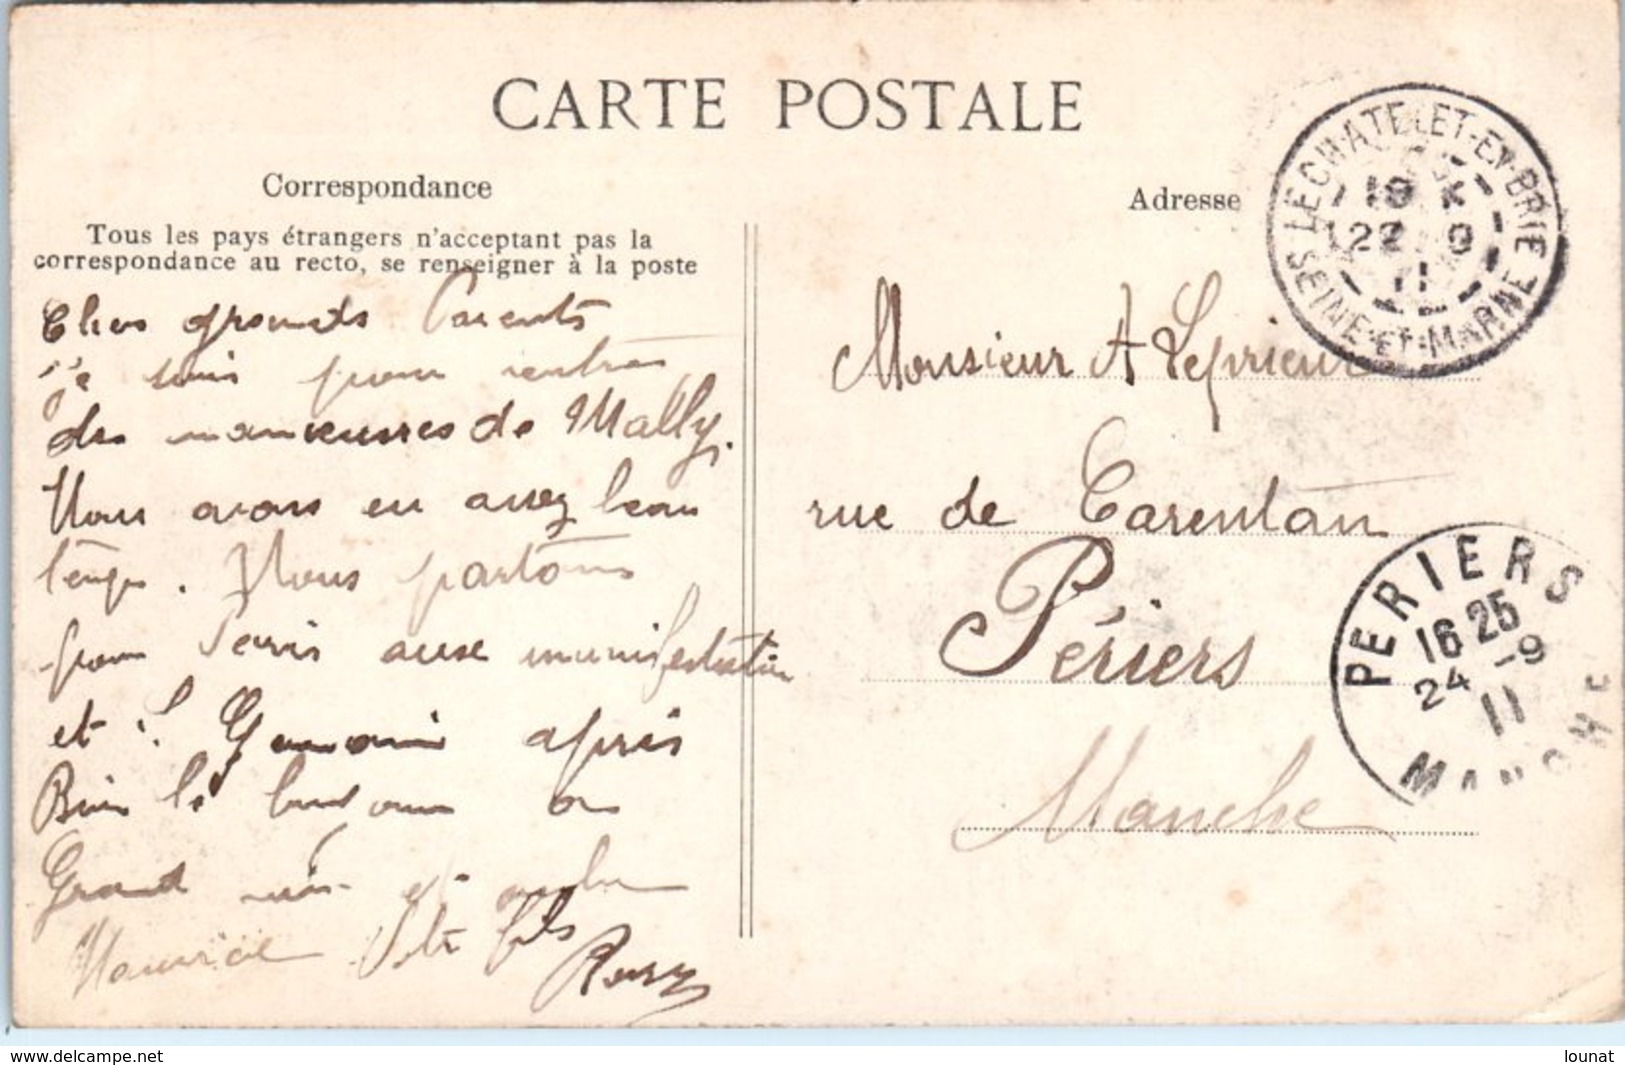 CARTE POSTALE
Correspondance
Tous les pays étrangers n'acceptant pas la
correspondance au recto, se renseigner à la poste
Adresse
LE CHATELET-EN-BRIE
22 9
11
SEINE-ET-MARNE
Chers grands Parents
je suis pour rentrer
des manœuvres de Mally.
Nous avons eu assez beau
temps. Nous partons
pour Paris aux manifestation
et S. Germain après
Bien le bonjour
Grand et
Maurice Petit fils
Monsieur A Leprieur
rue de Carentan
Périers
Manche
PERIERS
16 25
24 -9
11
MANCHE
www.delcampe.net
lounat